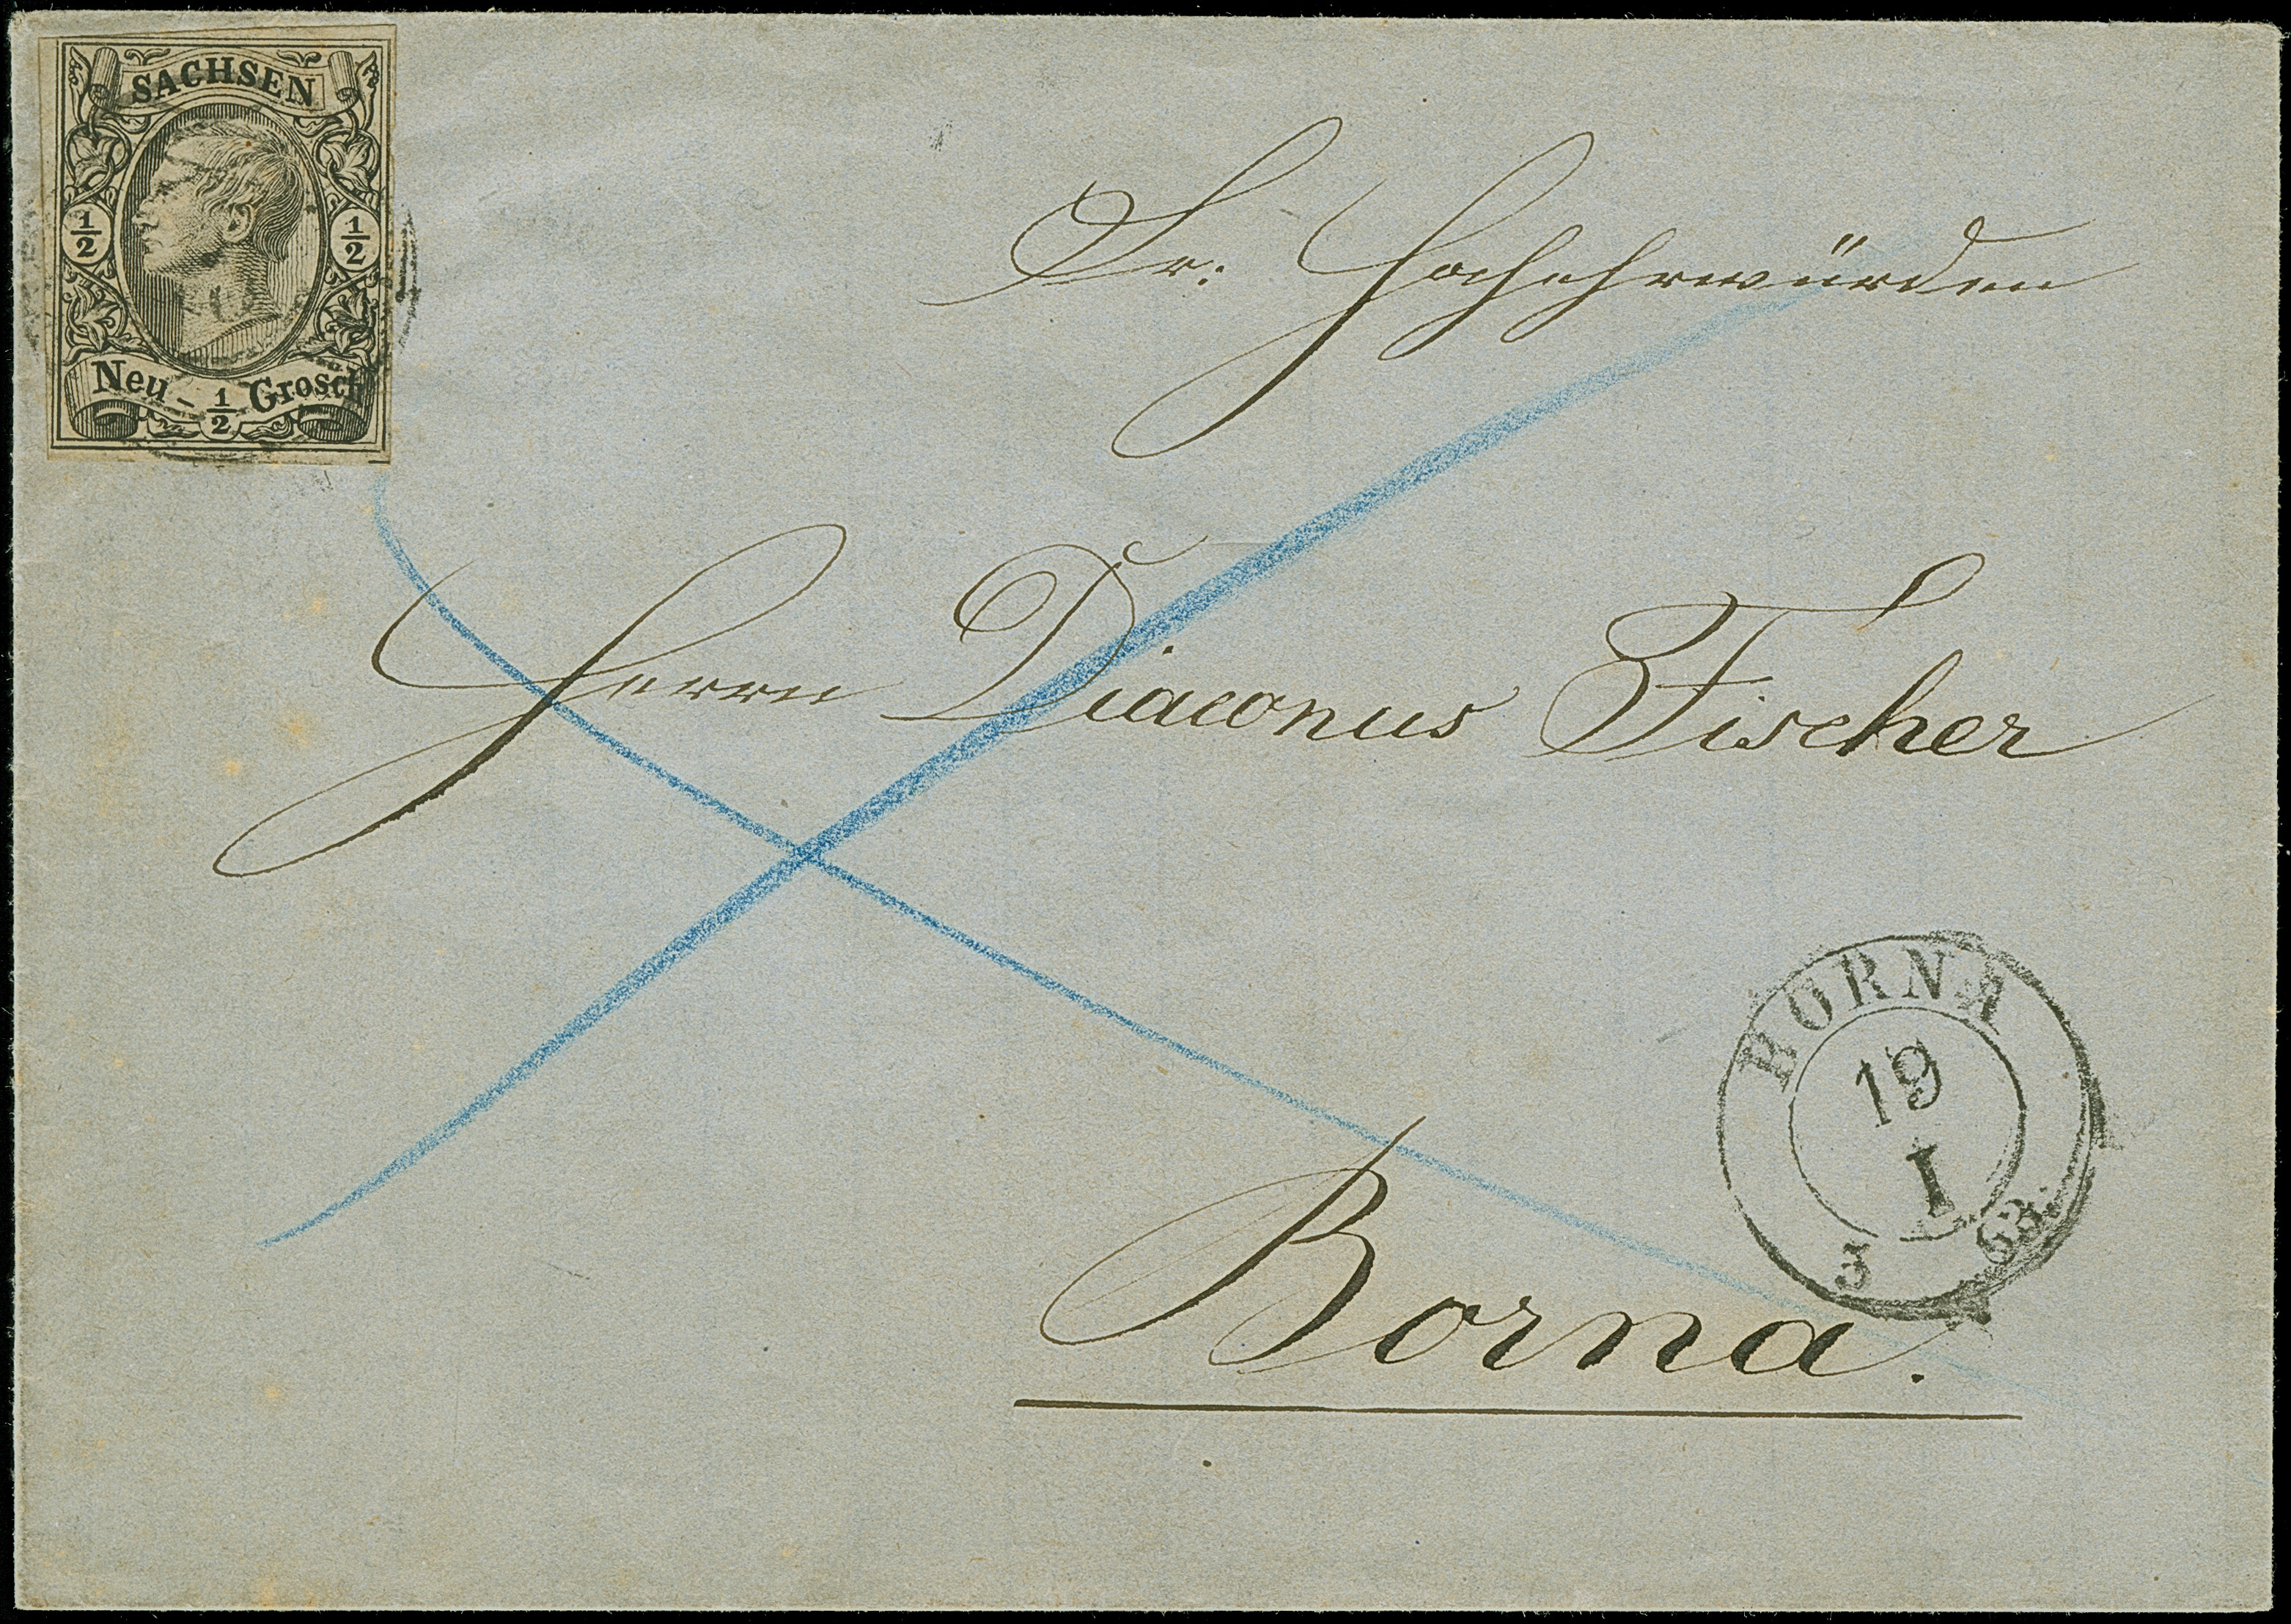 SACHSEN
1/2 1/2
Neu - 1/2 Grosch
Sr. Hochehrwürden
Herrn Diaconus Fischer
BORNA
19
I
Borna.